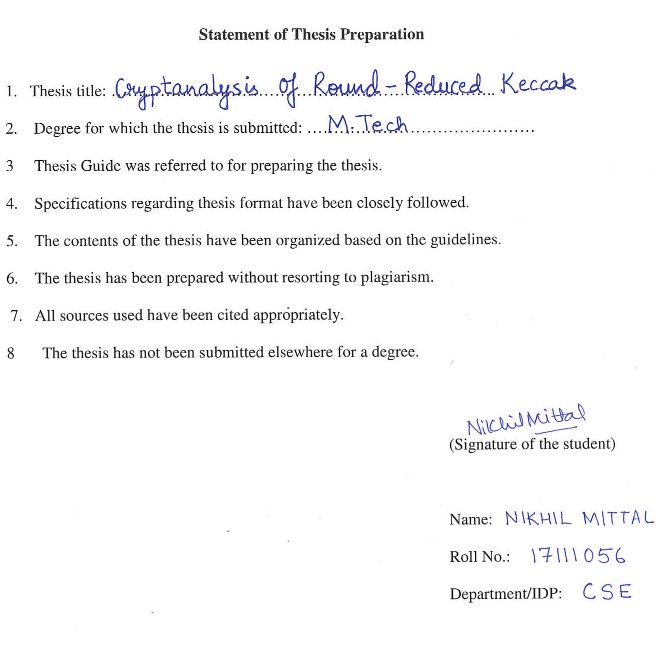 Statement of Thesis Preparation
1. Thesis title: Cryptanalysis of Round-Reduced Keccak
2. Degree for which the thesis is submitted: ....M.Tech.......................
3 Thesis Guide was referred to for preparing the thesis.
4. Specifications regarding thesis format have been closely followed.
5. The contents of the thesis have been organized based on the guidelines.
6. The thesis has been prepared without resorting to plagiarism.
7. All sources used have been cited appropriately.
8 The thesis has not been submitted elsewhere for a degree.
Nikhil Mittal
(Signature of the student)
Name: NIKHIL MITTAL
Roll No.: 17111056
Department/IDP: CSE